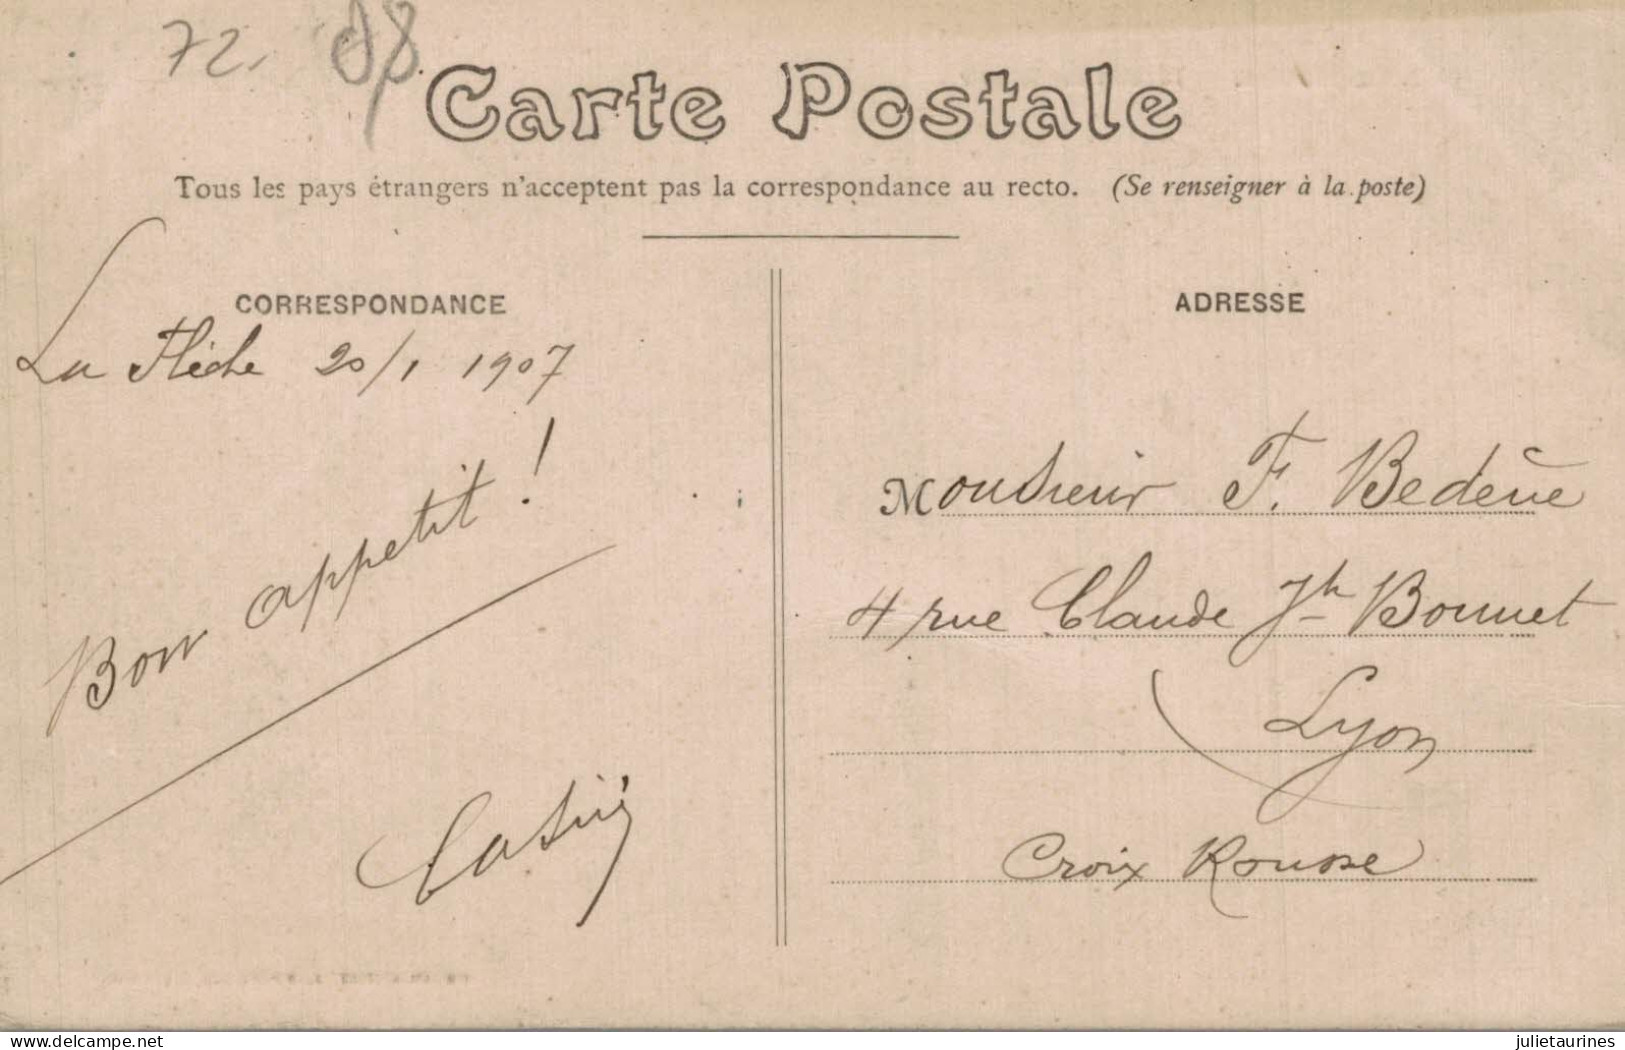 72. 98
Carte Postale
Tous les pays étrangers n'acceptent pas la correspondance au recto. (Se renseigner à la poste)
CORRESPONDANCE
La Flèche 20/1 1907
Bon appetit !
ADRESSE
Monsieur F. Bedène
4 rue Claude Jh Bonnet
Lyon
Croix Rousse
delcampe.net
julietaurines